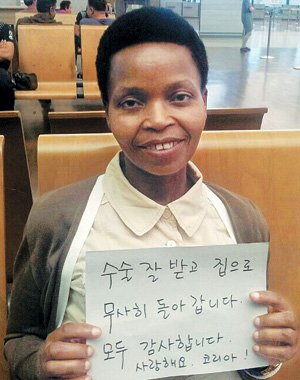 수술 잘 받고 집으로
무사히 돌아 갑니다.
모두 감사합니다.
사랑해요. 코리아!